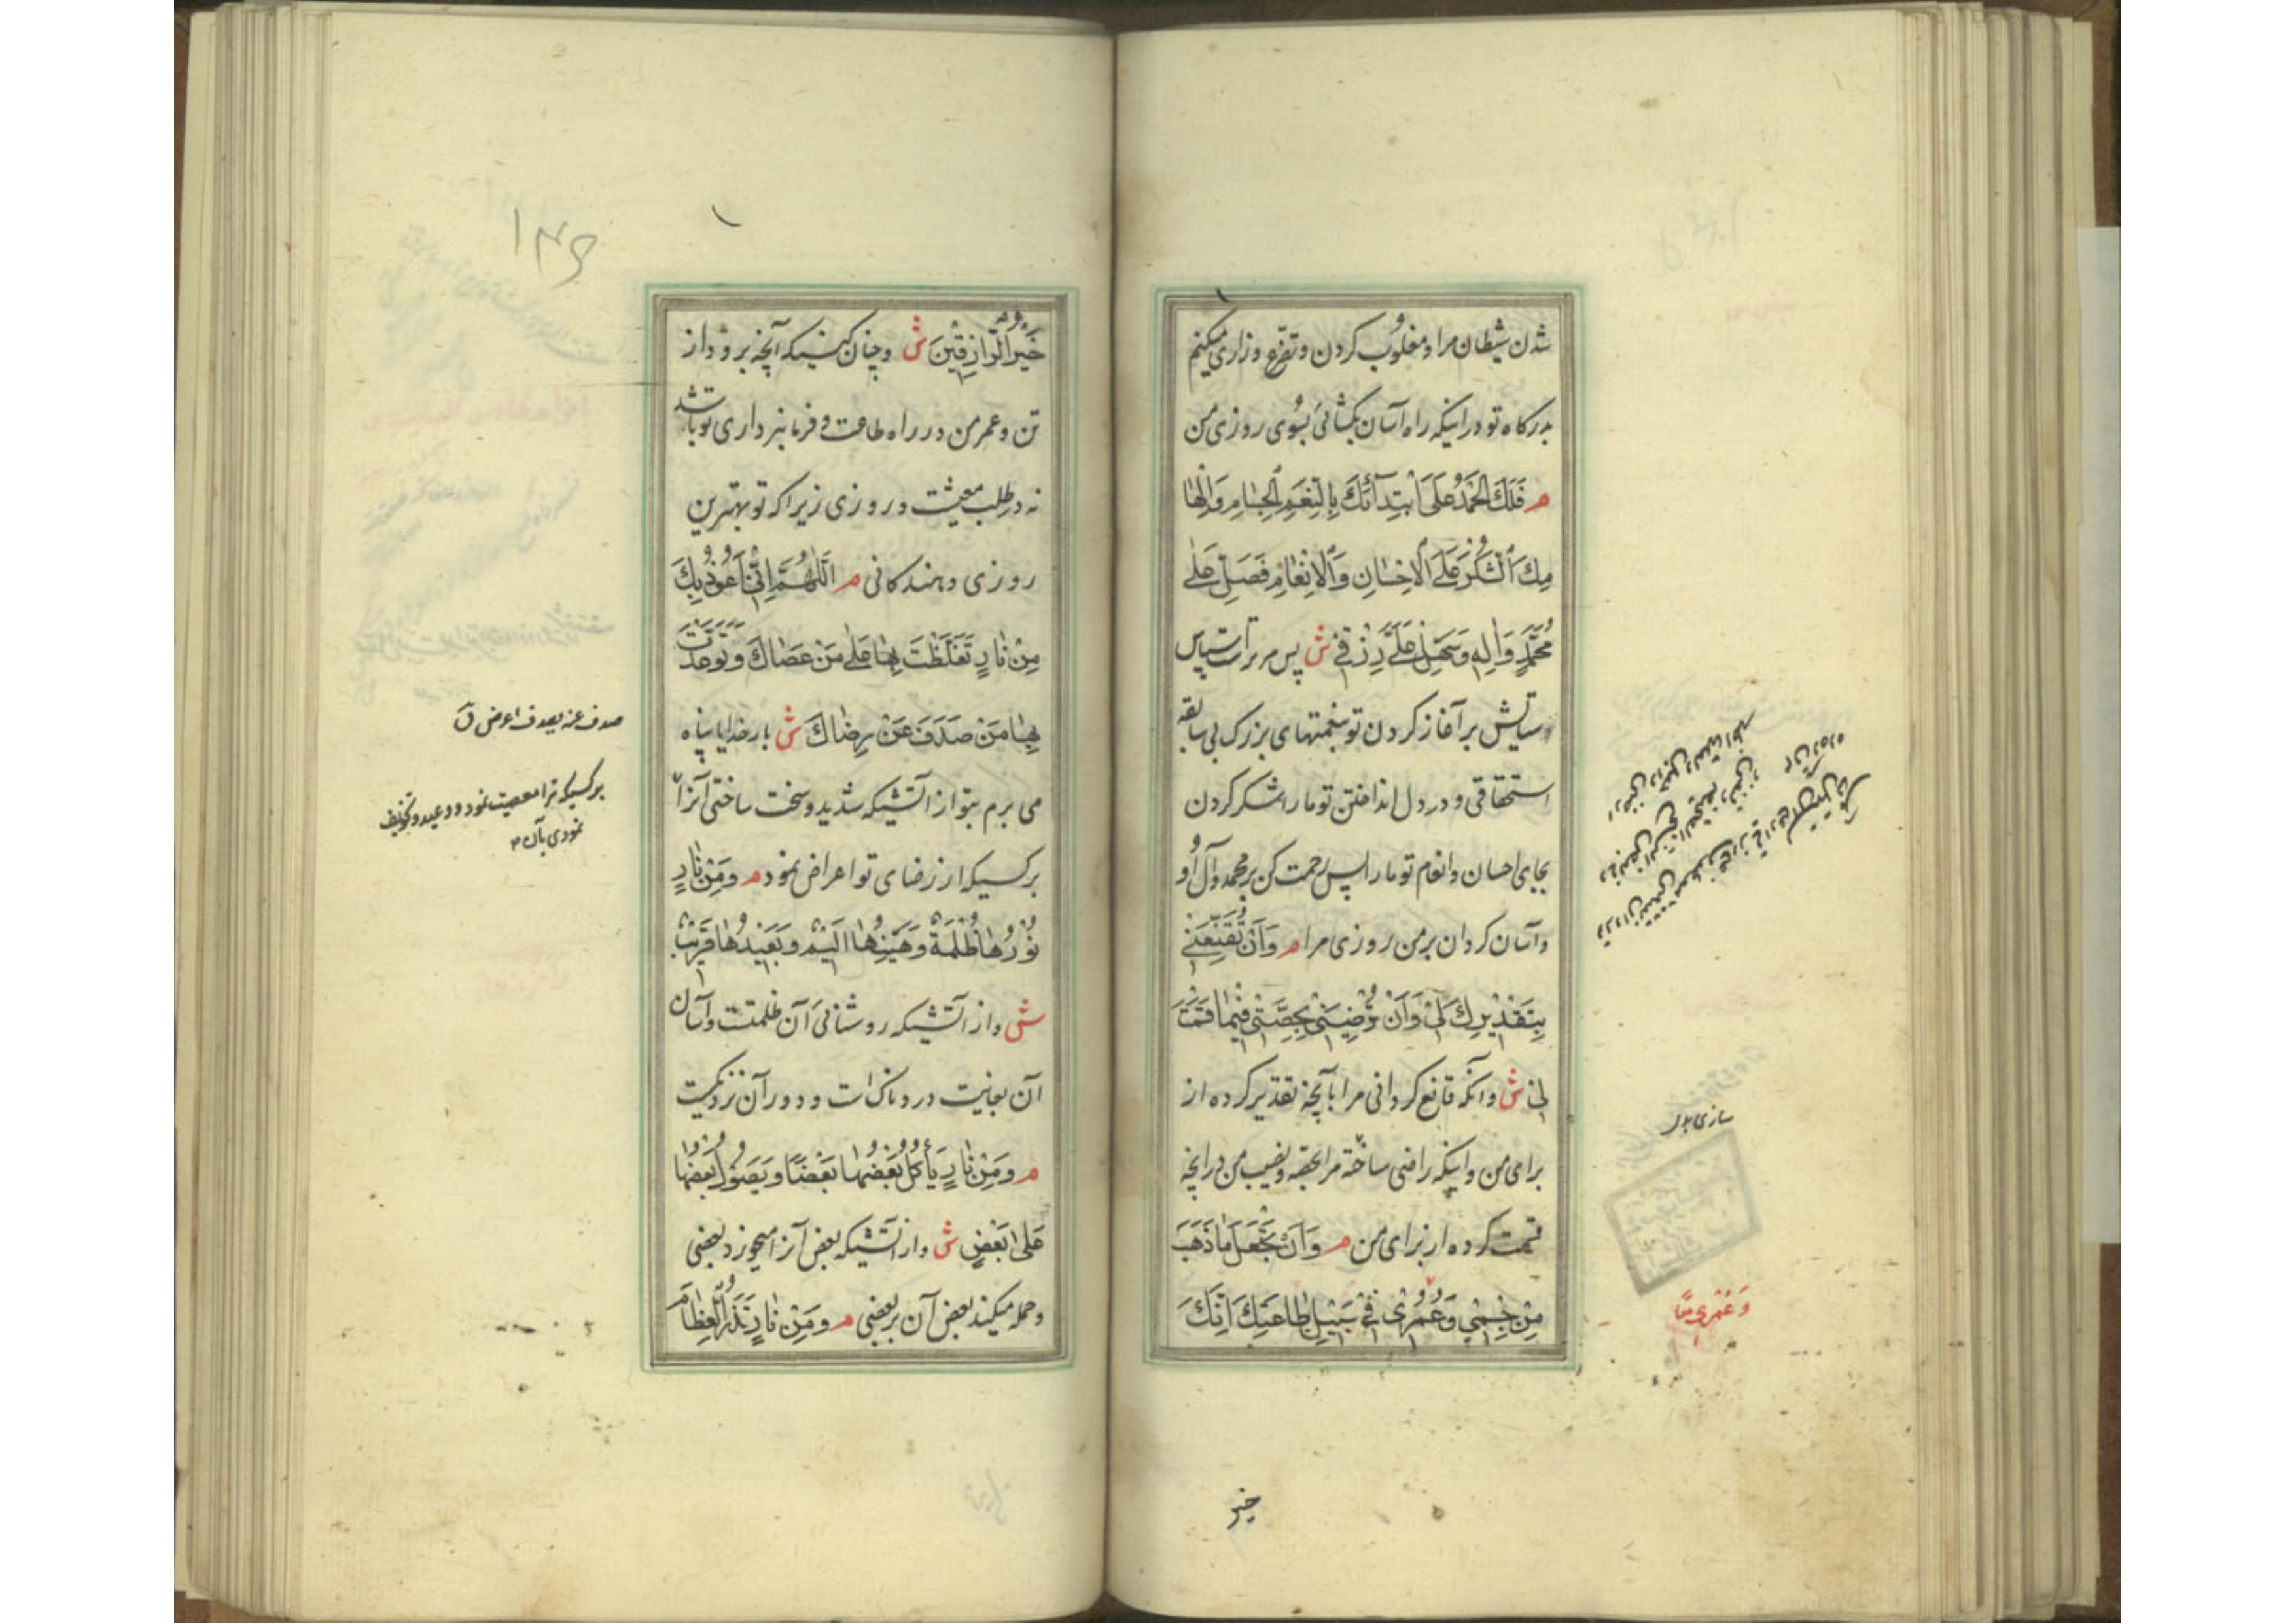 شدن شیطان مرا و مغلوب کردن و تضرع و زاری میکنم
بدرکاه تو در اینکه راه آسان بکشائی بسوی روزی من
م فَلَكَ الْحَمْدُ عَلَى ابْتِدَآئِكَ بِالنِّعَمِ الْجِسَامِ وَاِلْهَا
مِكَ الشُّكْرَ عَلَى الْاِحْسَانِ وَالْاِنْعَامِ فَصَلِّ عَلٰى
مُحَمَّدٍ وَاٰلِهِ وَسَهِّلْ عَلَيَّ رِزْقِي ش پس مر تراست سپاس
و ستایش بر آغاز کردن تو بنعمتهای بزرک بی سابقه
استحقاقی و در دل انداختن تو ما را شکر کردن
بجای احسان و انعام تو ما را پس رحمت کن بر محمد و آل او
و آسان کردان بر من روزی مرا م وَاَنْ تُقَنِّعَنِي
بِتَقْدِيْرِكَ لِيْ وَاَنْ تُرْضِيَنِيْ بِحِصَّتِيْ فِيْمَا قَسَمْتَ
لِيْ ش و آنکه قانع کردانی مرا بآنچه تقدیر کرده از
برای من و اینکه راضی ساخته مرا بحصه و نصیب من در انچه
قسمت کرده از برای من م وَاَنْ تَجْعَلَ مَا ذَهَبَ
مِنْ جِسْمِيْ وَعُمْرِيْ فِيْ سَبِيْلِ طَاعَتِكَ اِنَّكَ
سازی بدل
وَعُمْرِي
خیر
۱۳۶
خَيْرُ الرَّازِقِيْنَ ش و چنان کنی که آنچه برود از
تن و عمر من در راه طاعت و فرمانبرداری تو باشد
نه در طلب معیشت و روزی زیرا که تو بهترین
روزی دهندکانی م اَللّٰهُمَّ اِنِّيْ اَعُوْذُ بِكَ
مِنْ نَارٍ تَغَلَّظْتَ بِهَا عَلٰى مَنْ عَصَاكَ وَتَوَعَّدْتَ
بِهَا مَنْ صَدَفَ عَنْ رِضَاكَ ش بار خدایا پناه
می برم بتو از آتشیکه شدید و سخت ساختی آنرا
بر کسیکه از رضای تو اعراض نمود م وَمِنْ نَارٍ
نُوْرُهَا ظُلْمَةٌ وَهَيِّنُهَا اَلِيْمٌ وَبَعِيْدُهَا قَرِيْبٌ
ش و از آتشیکه روشنائی آن ظلمتست و آسان
آن بغایت دردناک است و دور آن نزدیکست
م وَمِنْ نَارٍ يَأْكُلُ بَعْضُهَا بَعْضًا وَيَصُوْلُ بَعْضُهَا
عَلٰى بَعْضٍ ش و از آتشیکه بعض آنرا میخورد بعضی
و حمله میکند بعض آن بر بعضی م وَمِنْ نَارٍ تَذَرُ الْعِظَامَ
صدف عنه یصدف اعرض ق
بر کسیکه ترا معصیت نمود و وعید و تخویف
نمودی بآن